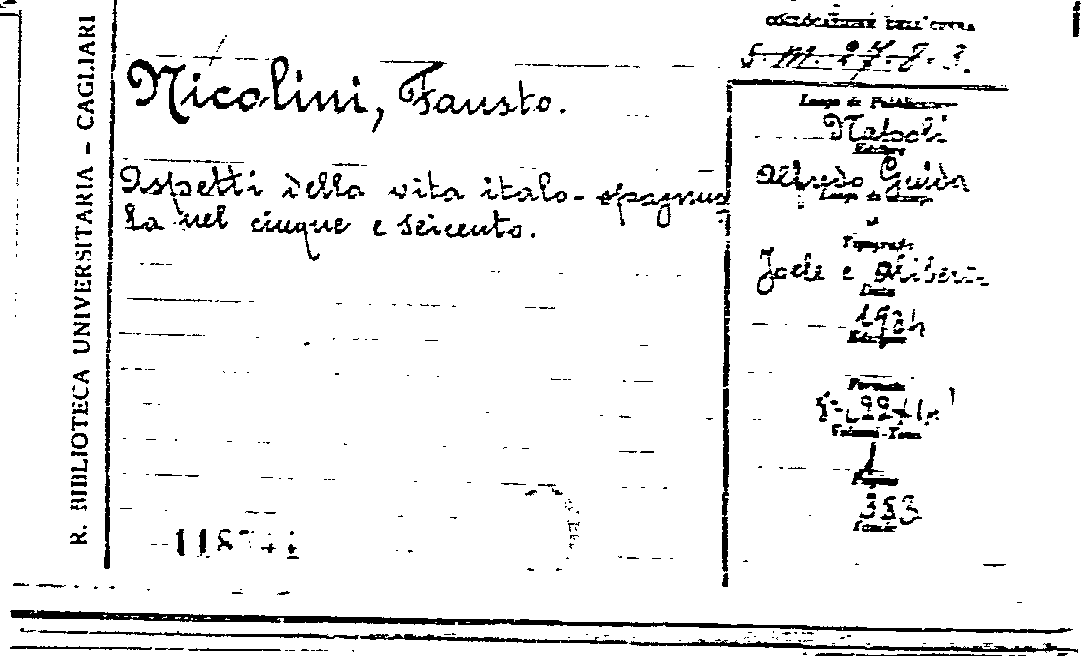 R. BIBLIOTECA UNIVERSITARIA - CAGLIARI
COLLOCAZIONE DELL'OPERA
S. M. 27. 8. 3.
Nicolini, Fausto.
Aspetti della vita italo-spagnuo
la nel cinque e seicento.
Luogo di Pubblicazione
Napoli
Editore
Alfredo Guida
Luogo di stampa
Tipografo
Jaele e Aliberti
Data
1934
Edizione
Formato
Volumi-Tomi
1
Pagine
353